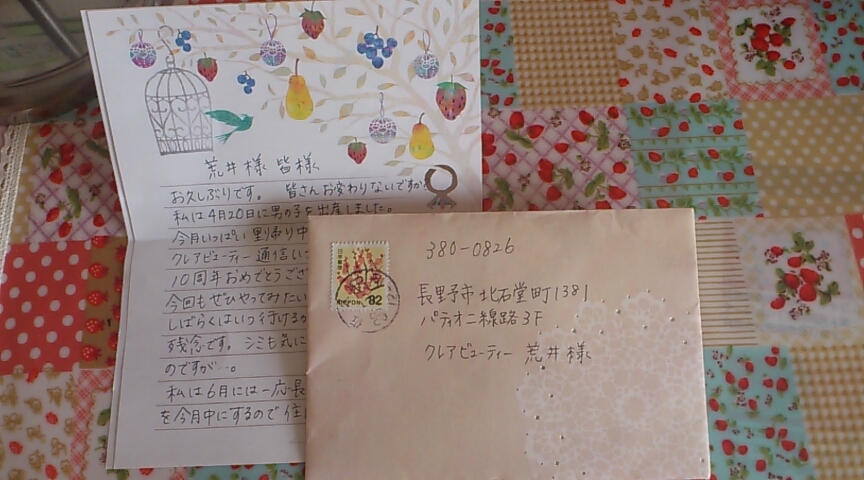 荒井様 皆様
お久しぶりです。 皆さんお変わりないですか
私は4月20日に男の子を出産しました。
今月いっぱい里帰り中
クレアビューティー通信い
10周年おめでとうござ
今回もぜひやってみたい
しばらくはいつ行けるか
残念です。シミも気に
のですが…。
私は6月には一応長
を今月中にするので住
日本郵便
NIPPON 82
380-0826
長野市北石堂町1381
パティオ二線路3F
クレアビューティー 荒井様